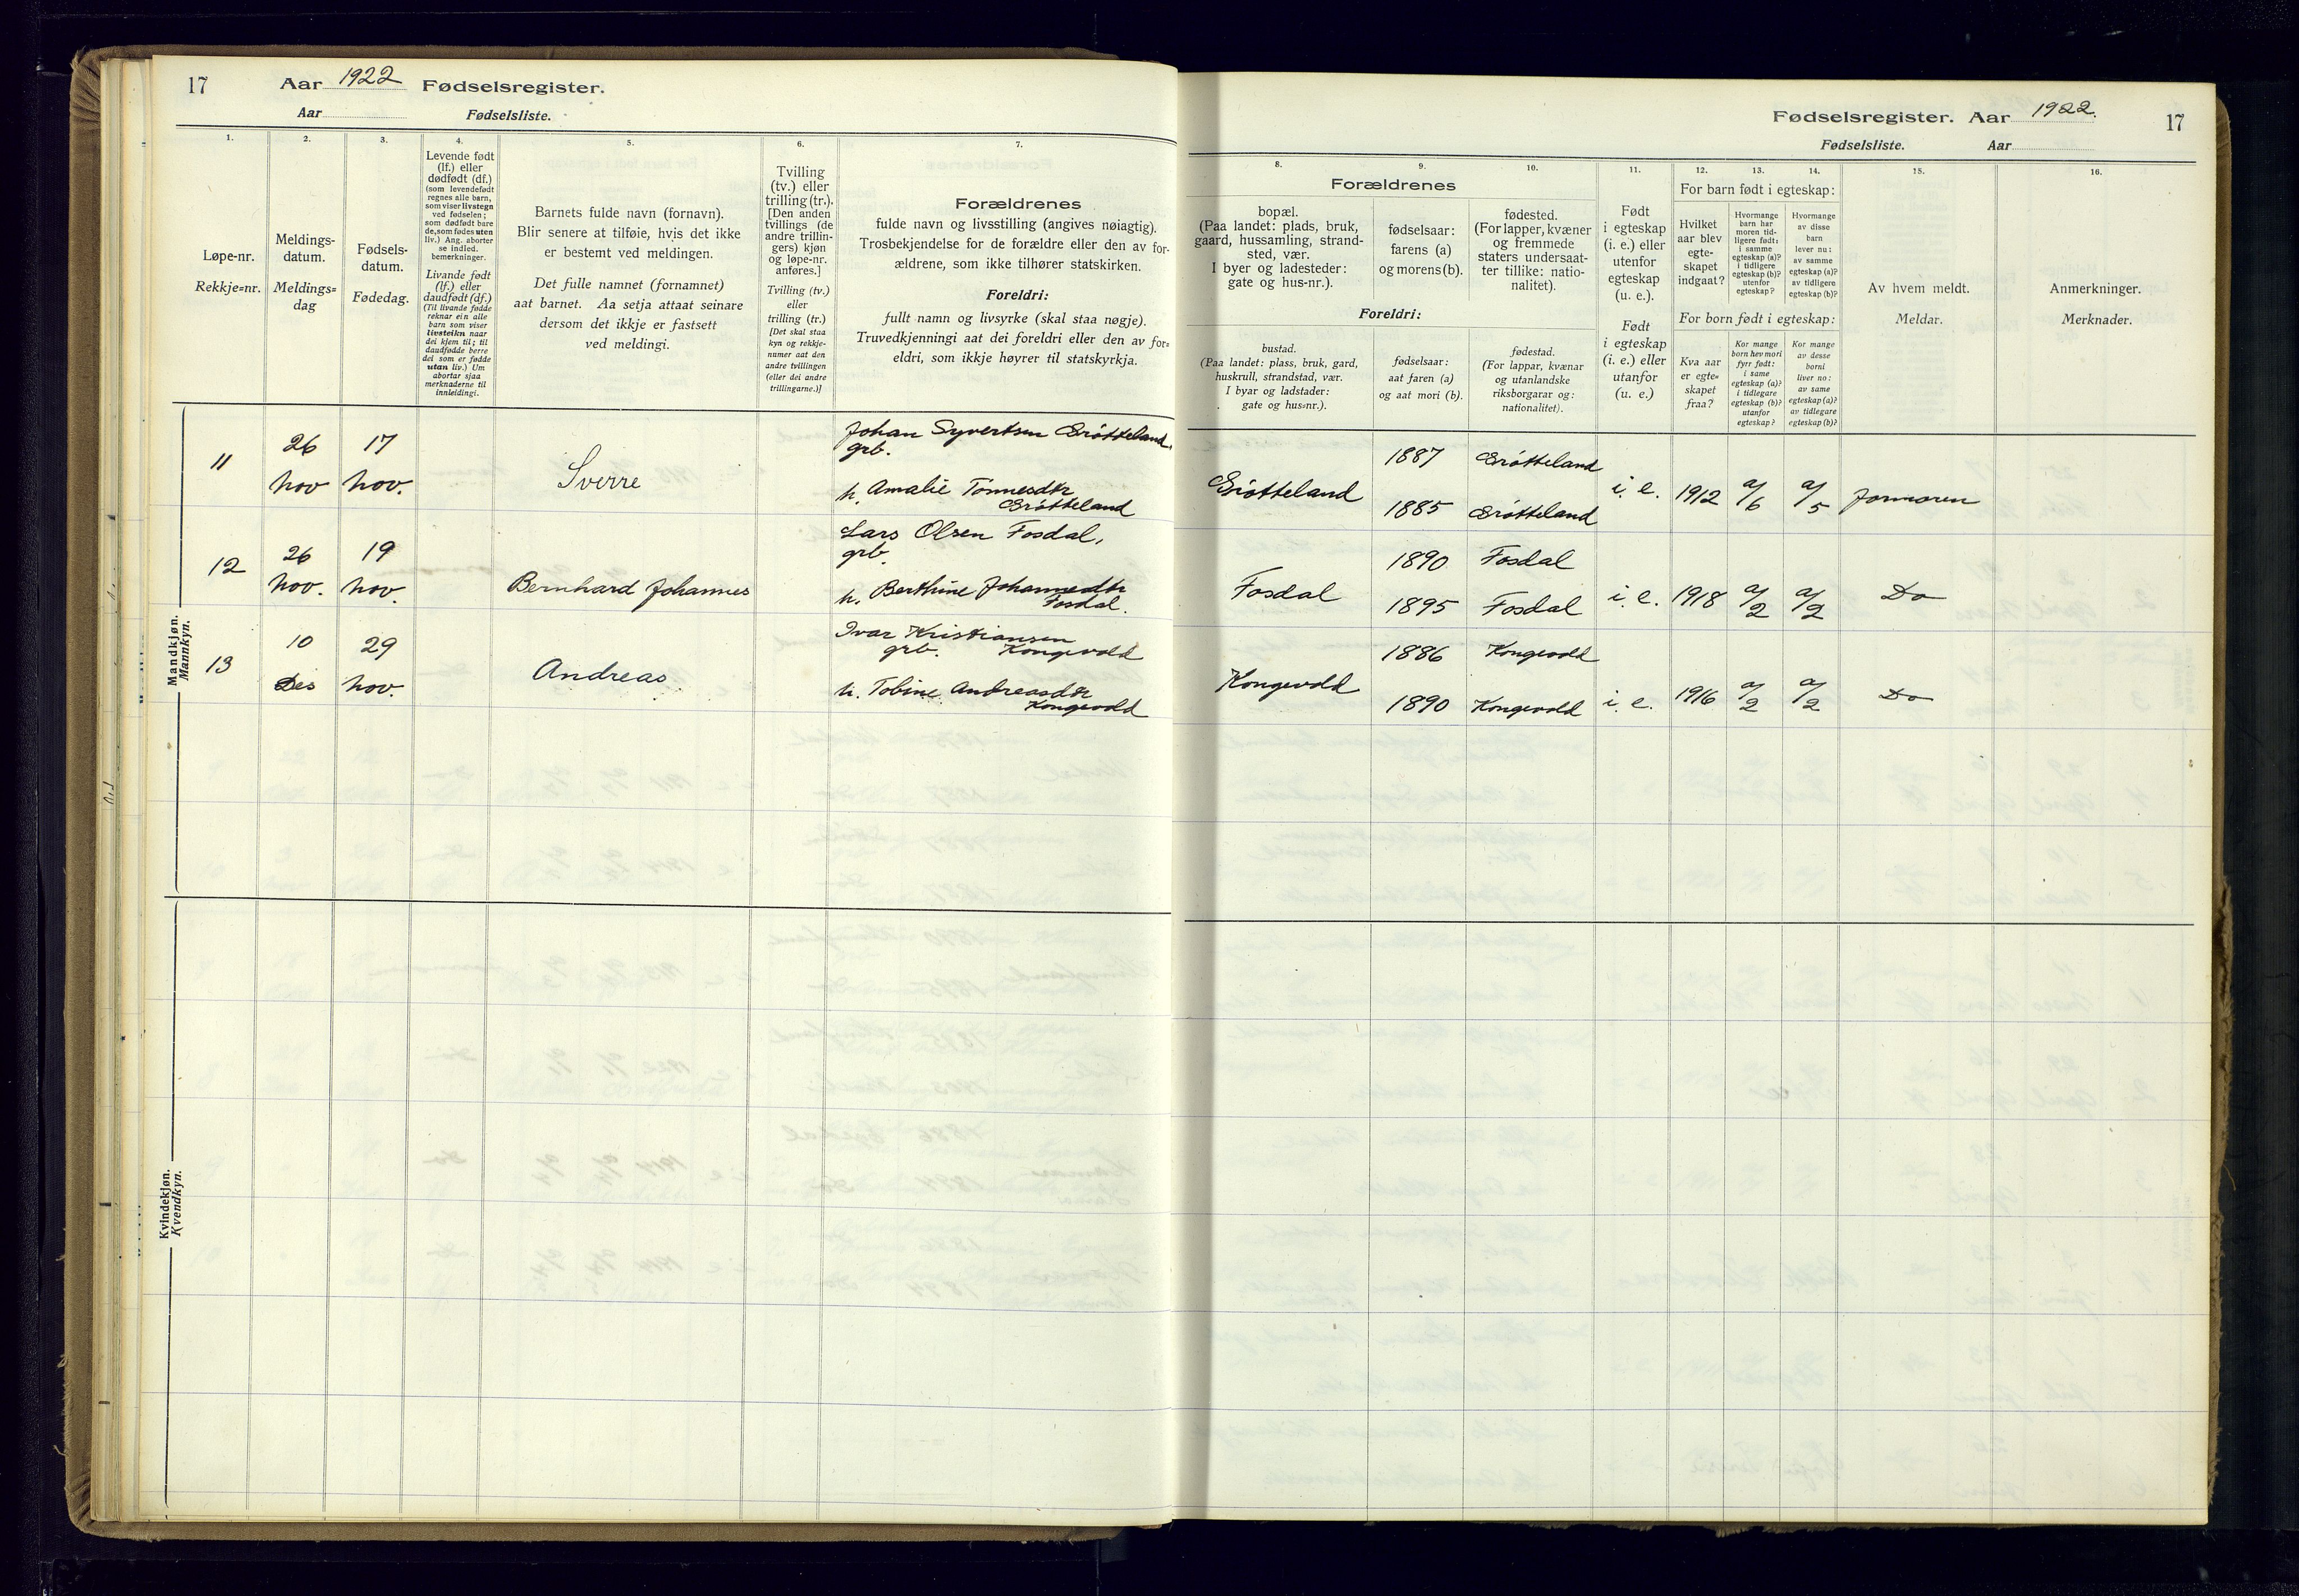 17 Aar 1922 Fødselsregister.
Aar Fødselsliste.
Fødselsregister. Aar 1922. 17
Fødselsliste. Aar
1.
Løpe-nr.
Rekkje=nr.
2.
Meldings-
datum.
Meldings=
dag
3.
Fødsels-
datum.
Fødedag.
4.
Levende født
(lf.) eller
dødfødt (df.)
(som levendefødt
regnes alle barn,
som viser livstegn
ved fødselen;
som dødfødt bare
de, som fødes uten
liv.) Ang. aborter
se indled.
bemerkninger.
Livande født
(lf.) eller
daudfødt (df.)
(Til livande fødde
reknar ein alle
barn som viser
livsteikn naar
dei kjem til; til
daudfødde berre
dei som er fødde
utan liv.) Um
abortar sjaa
merknaderne til
innleidingi.
5.
Barnets fulde navn (fornavn).
Blir senere at tilføie, hvis det ikke
er bestemt ved meldingen.
Det fulle namnet (fornamnet)
aat barnet. Aa setja attaat seinare
dersom det ikkje er fastsett
ved meldingi.
6.
Tvilling
(tv.) eller
trilling (tr.).
[Den anden
tvillings (de
andre trillin-
gers) kjøn
og løpe-nr.
anføres.]
Tvilling (tv.)
eller
trilling (tr.)
[Det skal staa
kyn og rekkje-
numer aat den
andre tvillingen
(eller dei andre
trillingarne.)]
7.
Forældrenes
fulde navn og livsstilling (angives nøiagtig).
Trosbekjendelse for de forældre eller den av for-
ældrene, som ikke tilhører statskirken.
Foreldri:
fullt namn og livsyrke (skal staa nøgje).
Truvedkjenningi aat dei foreldri eller den av for=
eldri, som ikkje høyrer til statskyrkja.
8.
Forældrenes
bopæl.
(Paa landet: plads, bruk,
gaard, hussamling, strand-
sted, vær.
I byer og ladesteder:
gate og hus-nr.).
Foreldri:
bustad.
(Paa landet: plass, bruk, gard,
huskrull, strandstad, vær.
I byar og ladstader:
gate og hus=nr.).
9.
fødselsaar:
farens (a)
og morens (b).
fødselsaar:
aat faren (a)
og aat mori (b).
10.
fødested.
(For lapper, kvæner
og fremmede
staters undersaat-
ter tillike: natio-
nalitet).
fødestad.
(For lappar, kvænar
og utanlandske
riksborgarar og:
nationalitet).
11.
Født
i egteskap
(i. e.) eller
utenfor
egteskap
(u. e.).
Født
i egteskap
(i. e.) eller
utanfor
(u. e.)
12.
For barn født i egteskap:
Hvilket
aar blev
egte-
skapet
indgaat?
For born født i egteskap:
Kva aar
er egte=
skapet
fraa?
13.
Hvormange
barn har
moren tid-
ligere født:
i samme
egteskap (a)?
i tidligere
egteskap (b)?
utenfor
egteskap?
Kor mange
born hev mori
fyrr født:
i same
egteskap (a)?
i tidlegare
egteskap (b)?
utanfor
egteskap?
14.
Hvormange
av disse
barn
lever nu:
av samme
egteskap (a)?
av tidligere
egteskap (b)?
Kor mange
av desse
borni
liver no:
av same
egteskap (a)?
av tidlegare
egteskap (b)?
15.
Av hvem meldt.
Meldar.
16.
Anmerkninger.
Merknader.
Mandkjøn.
Mannkyn.
11
26
nov
17
nov.
Sverre
Johan Syvertsen Erøtteland.
grb.
h. Amalie Tønnesdtr
Erøtteland
Erøtteland
1887
1885
Erøtteland
Erøtteland
i. e. 1912 a/6 a/5 Jormoren
12
26
nov.
19
nov.
Bernhard Johannes
Lars Olsen Fosdal,
grb.
h. Berthine Johannesdtr
Fosdal.
Fosdal
1890
1895
Fosdal
Fosdal
i. e. 1918 a/2 a/2 Do
13
10
Des
29
nov.
Andreas
Ivar Kristiansen
grb. Kongevold
h. Tobine Andreasdtr
Kongevold
Kongevold
1886
1890
Kongevold
Kongevold
i. e. 1916 a/2 a/2 Do
Kvindekjøn.
Kvendkyn.